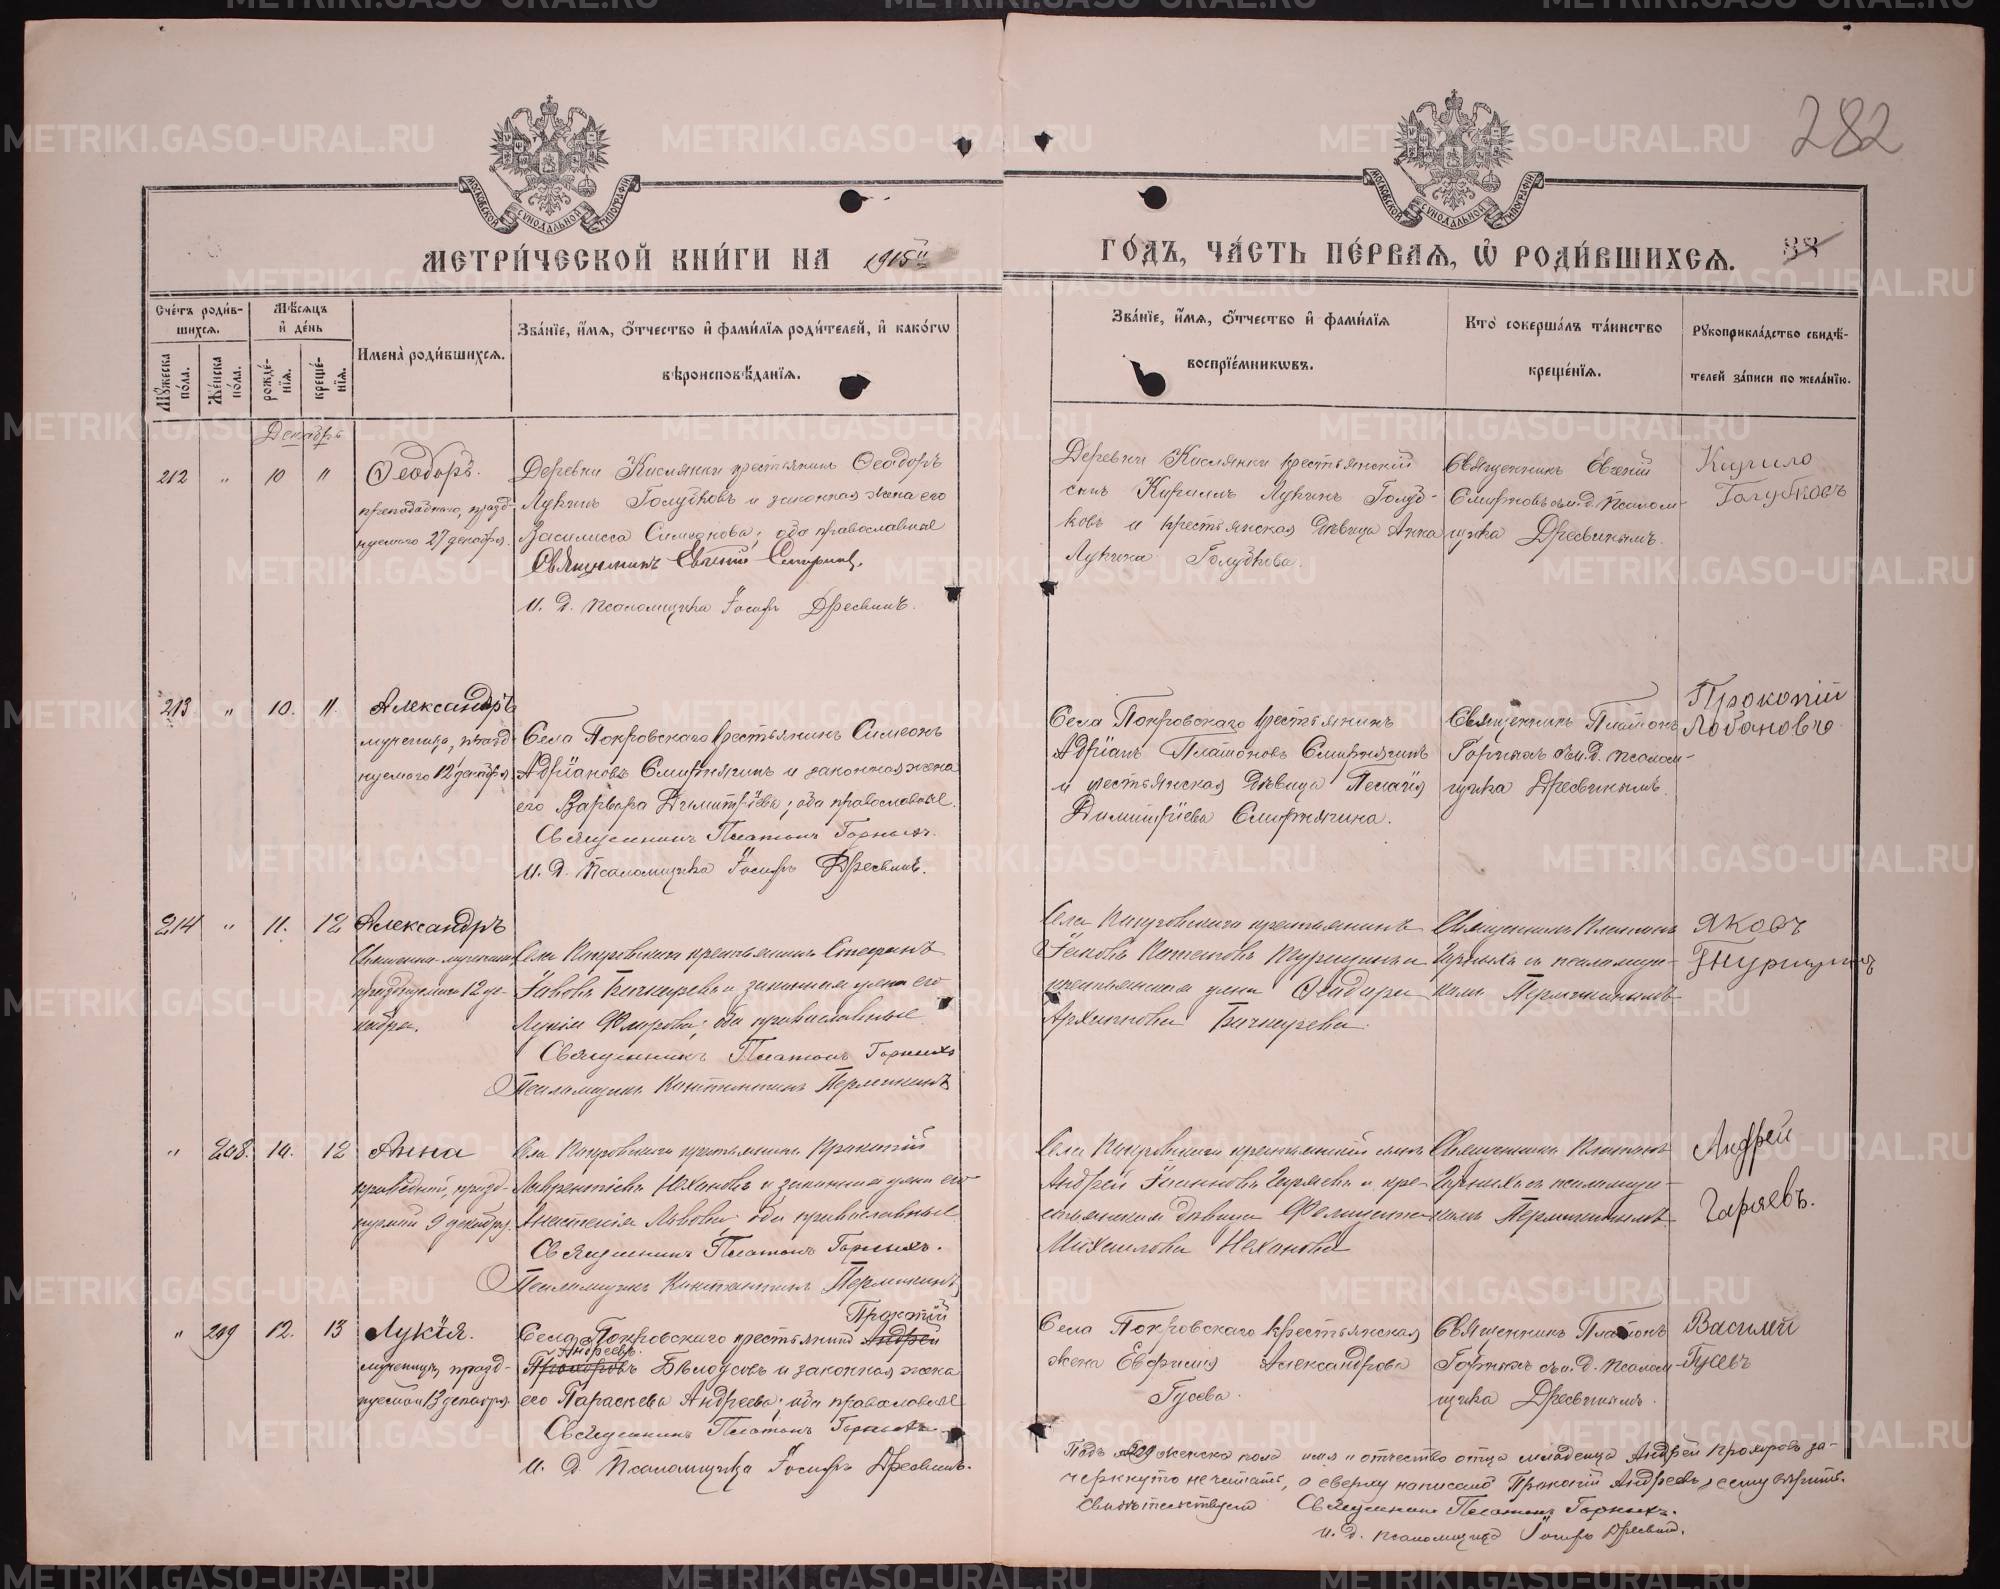 282
МОСКОВСКОЙ СѴНОДАЛЬНОЙ ТИПОГРАФІИ
МОСКОВСКОЙ СѴНОДАЛЬНОЙ ТИПОГРАФІИ
МЕТРИ́ЧЕСКОЙ КНИ́ГИ НА 1915й
ГО́ДЪ, ЧА́СТЬ ПЕ́РВАѦ, Ѡ РОДИ́ВШИХСѦ.
Сче́тъ роди́вшихсѧ.
Мꙋ́жеска по́ла.
Же́нска по́ла.
Мѣ́сѧцъ и҆ де́нь
рожде́нїѧ.
креще́нїѧ.
Имена̀ роди́вшихсѧ.
Зва́нїе, и҆́мѧ, о҆́тчество и҆ фами́лїѧ роди́телей, и҆ како́гѡ
вѣроисповѣ́данїѧ.
Зва́нїе, и҆́мѧ, о҆́тчество и҆ фами́лїѧ
воспрїе́мникѡвъ.
Кто̀ соверша́лъ та́инство
креще́нїѧ.
Рꙋкоприкла́дство свидѣ́-
телей за́писи по жела́нїю.
Декабрь
212 " 10 11
Ѳеодоръ.
преподобнаго, празд-
нуемаго 27 декабря.
Деревни Кислянки крестьянинъ Ѳеодоръ
Лукинъ Голубковъ и законная жена его
Василисса Симеонова; оба православные
Священникъ Евгеній Смирнов.
И. д. псаломщика Іосифъ Дресвинъ.
Деревни Кислянки крестьянскій
сынъ Кириллъ Лукинъ Голуб-
ковъ и крестьянская дѣвица Анна
Лукина Голубкова.
Священникъ Евгеній
Смирновъ съ и. д. псалом-
щика Дресвинымъ.
Кирило
Голубковъ
213 " 10. 11.
Александръ
мученика, празд-
нуемаго 12 декабря
Села Покровскаго крестьянинъ Симеонъ
Адріановъ Смирнягинъ и законная жена
его Варвара Димитріева; оба православные.
Священникъ Платонъ Горныхъ.
И. д. псаломщика Іосифъ Дресвинъ.
Села Покровскаго крестьянинъ
Адріанъ Платоновъ Смирнягинъ
и крестьянская дѣвица Пелагія
Димитріева Смирнягина.
Священникъ Платонъ
Горныхъ съ и. д. псалом-
щика Дресвинымъ.
Прокопій
Лобановъ
214 " 11. 12
Александръ
Священно-мученика
празднуемаго 12 де-
кабря.
Села Покровскаго крестьянинъ Стефанъ
Іаковъ и законная жена его
Лукія Фи­рова; оба православные
Священникъ Платонъ Горныхъ
Псаломщикъ Константинъ Пермикинъ
Села Покровскаго крестьянинъ
Іаковъ и
крестьянская жена Ѳеодора
Архипова
Священникъ Платонъ
Горныхъ съ псаломщи-
комъ Пермикинымъ
Яковъ
" 208. 10. 12
Анна
праведной, празд-
нуемой 9 декабря.
Села Покровскаго крестьянинъ Прокопій
Лаврентіевъ Нехоновъ и законная жена его
Анастасія Львова; оба православные
Священникъ Платонъ Горныхъ.
Псаломщикъ Константинъ Пермикинъ
Села Покровскаго крестьянскій сынъ
Андрей Іоанновъ Гаряевъ и кре-
стьянская дѣвица Фелицата
Михаилова Нехонова
Священникъ Платонъ
Горныхъ съ псаломщи-
комъ Пермикинымъ
Андрей
Гаряевъ.
" 209 12. 13
Лукія.
мученицы, празд-
нуемой 13 декабря.
Прокопій
Села Покровскаго крестьянинъ Андрей
Андреевъ
Прохоровъ Бѣлоусовъ и законная жена
его Параскева Андреева; оба православные
Священникъ Платонъ Горныхъ.
И. д. Псаломщика Іосифъ Дресвинъ.
Села Покровскаго крестьянская
жена Евфимія Александрова
Гусева.
Священникъ Платонъ
Горныхъ съ и. д. псалом-
щика Дресвинымъ.
Василей
Гусевъ
Подъ №209 женска пола имя и отчество отца младенца Андрей Прохоровъ за-
черкнуто не читать, а сверху написано Прокопій Андреевъ, сему вѣрить.
Свидѣтельствуемъ Священникъ Платонъ Горныхъ.
и. д. псаломщика Іосифъ Дресвинъ.